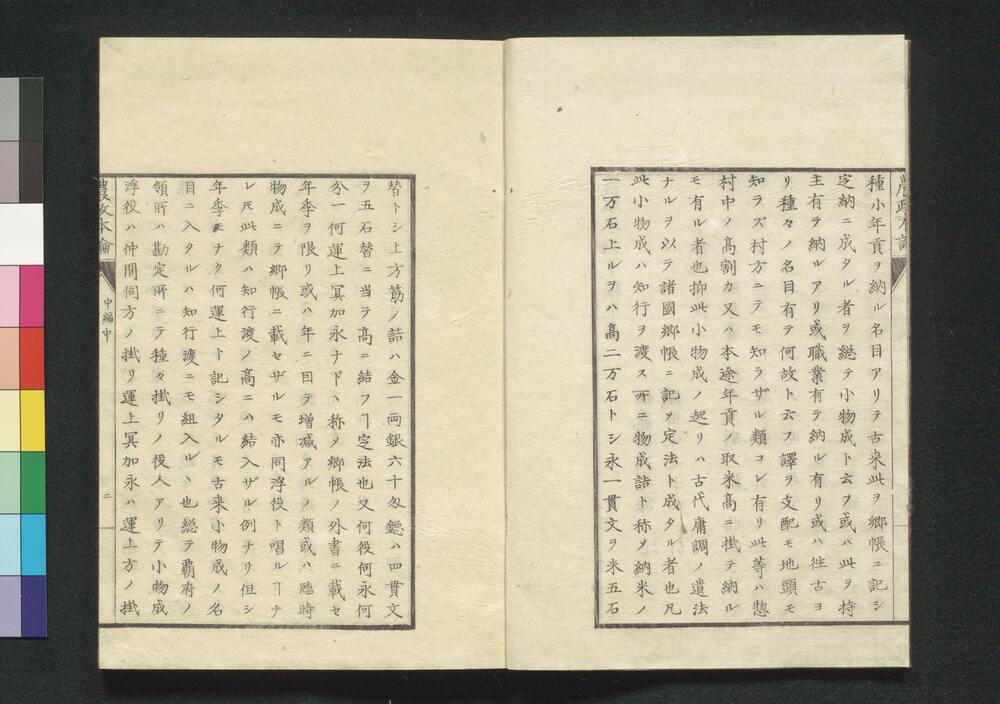 種小年貢ヲ納ル名目アリテ古来此ヲ郷帳ニ記シ
定納ニ成タル者ヲ総テ小物成ト云フ或ハ此ヲ持
主有テ納ルアリ或職業有テ納ル有リ或ハ往古ヨ
リ種々ノ名目有テ何故ト云フ譯ヲ支配モ地頭モ
知ラズ村方ニテモ知ラザル類コレ有リ此等ハ惣
村中ノ高割カ又ハ本途年貢ノ取米高ニ掛テ納ル
モ有ル者也抑此小物成ノ起リハ古代庸調ノ遺法
ナルヲ以テ諸國郷帳ニ記メ定法ト成タル者也凡
此小物成ハ知行ヲ渡ス所ニ物成詰ト称メ納米ノ
一万石上ルヲハ高二万石トシ永一貫文ヲ米五石
替トシ上方筋ノ詰ハ金一両銀六十匁鐚ハ四貫文
ヲ五石替ニ当テ高ニ結フヿ定法也又何役何永何
分一何運上冥加永ナドヽ称メ郷帳ノ外書ニ載セ
年季ヲ限リ或ハ年ニ回テ増减アルノ類或ハ臨時
物成ニテ郷帳ニ載セザルモ亦同浮役ト唱ルヿナ
レ𪜈此類ハ知行渡ノ高ニハ結入ザル例ナリ但シ
年季モナク何運上ト記シタルモ古来小物成ノ名
目ニ入タルハ知行渡ニモ組入ルヽ也総テ覇府ノ
領所ハ勘定所ニテ種々掛リノ役人アリテ小物成
浮役ハ仲間伺方ノ掛リ運上冥加永ハ運上方ノ掛
農政本論
中編中
二